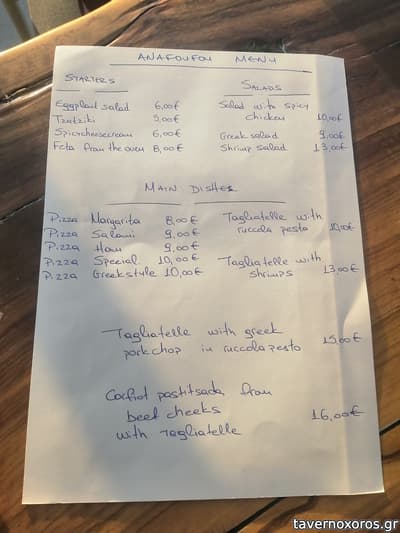 ANAFOUFOU MENU
STARTERS
Eggplant salad 6,00€
Tzatziki 5,00€
Spicy cheesecream 6,00€
Feta from the oven 8,00€
SALADS
Salad with spicy
chicken 10,00€
Greek salad 9,00€
Shrimp salad 13,00€
MAIN DISHES
Pizza Margarita 8,00€
Pizza Salami 9,00€
Pizza Ham 9,00€
Pizza Special 10,00€
Pizza Greekstyle 10,00€
Tagliatelle with
ruccola pesto 10,00€
Tagliatelle with
shrimps 13,00€
Tagliatelle with greek
porkchop in ruccola pesto 15,00€
Corfiot pastitsada from
beef cheeks
with Tagliatelle 16,00€
tavernoxoros.gr